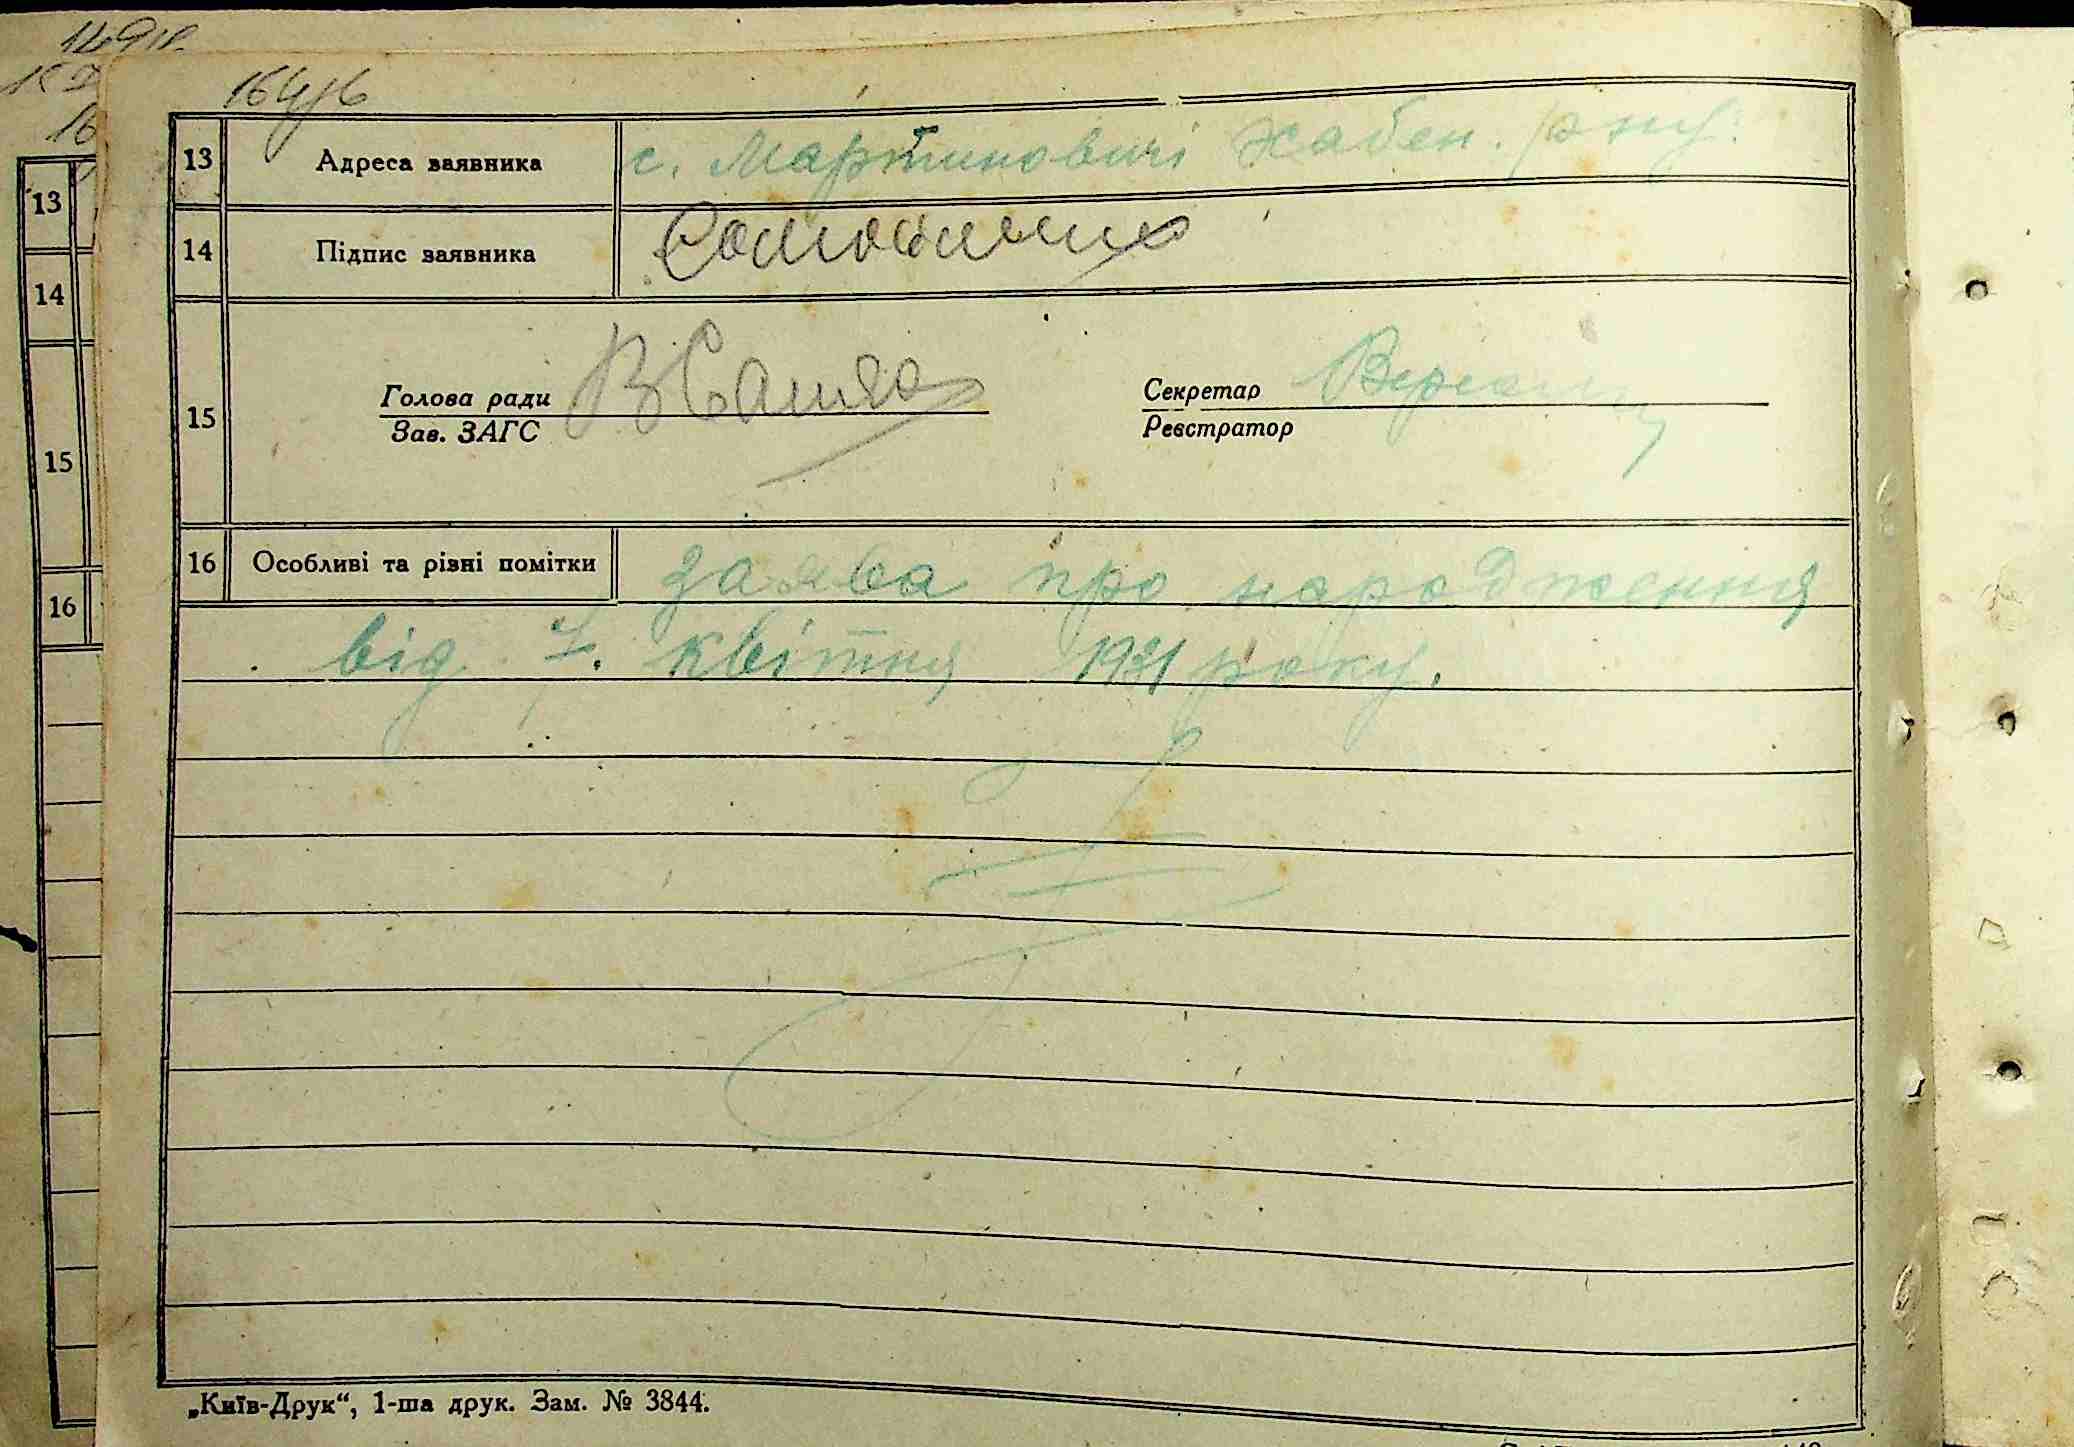 13 Адреса заявника с. Мартиновичі Хабен. р/ону.
14 Підпис заявника
15 Голова ради Секретар
Зав. ЗАГС Реєстратор
16 Особливі та різні помітки заява про народження
від 7. квітня 1931 року.
„Київ-Друк“, 1-ша друк. Зам. № 3844.
13
14
15
16